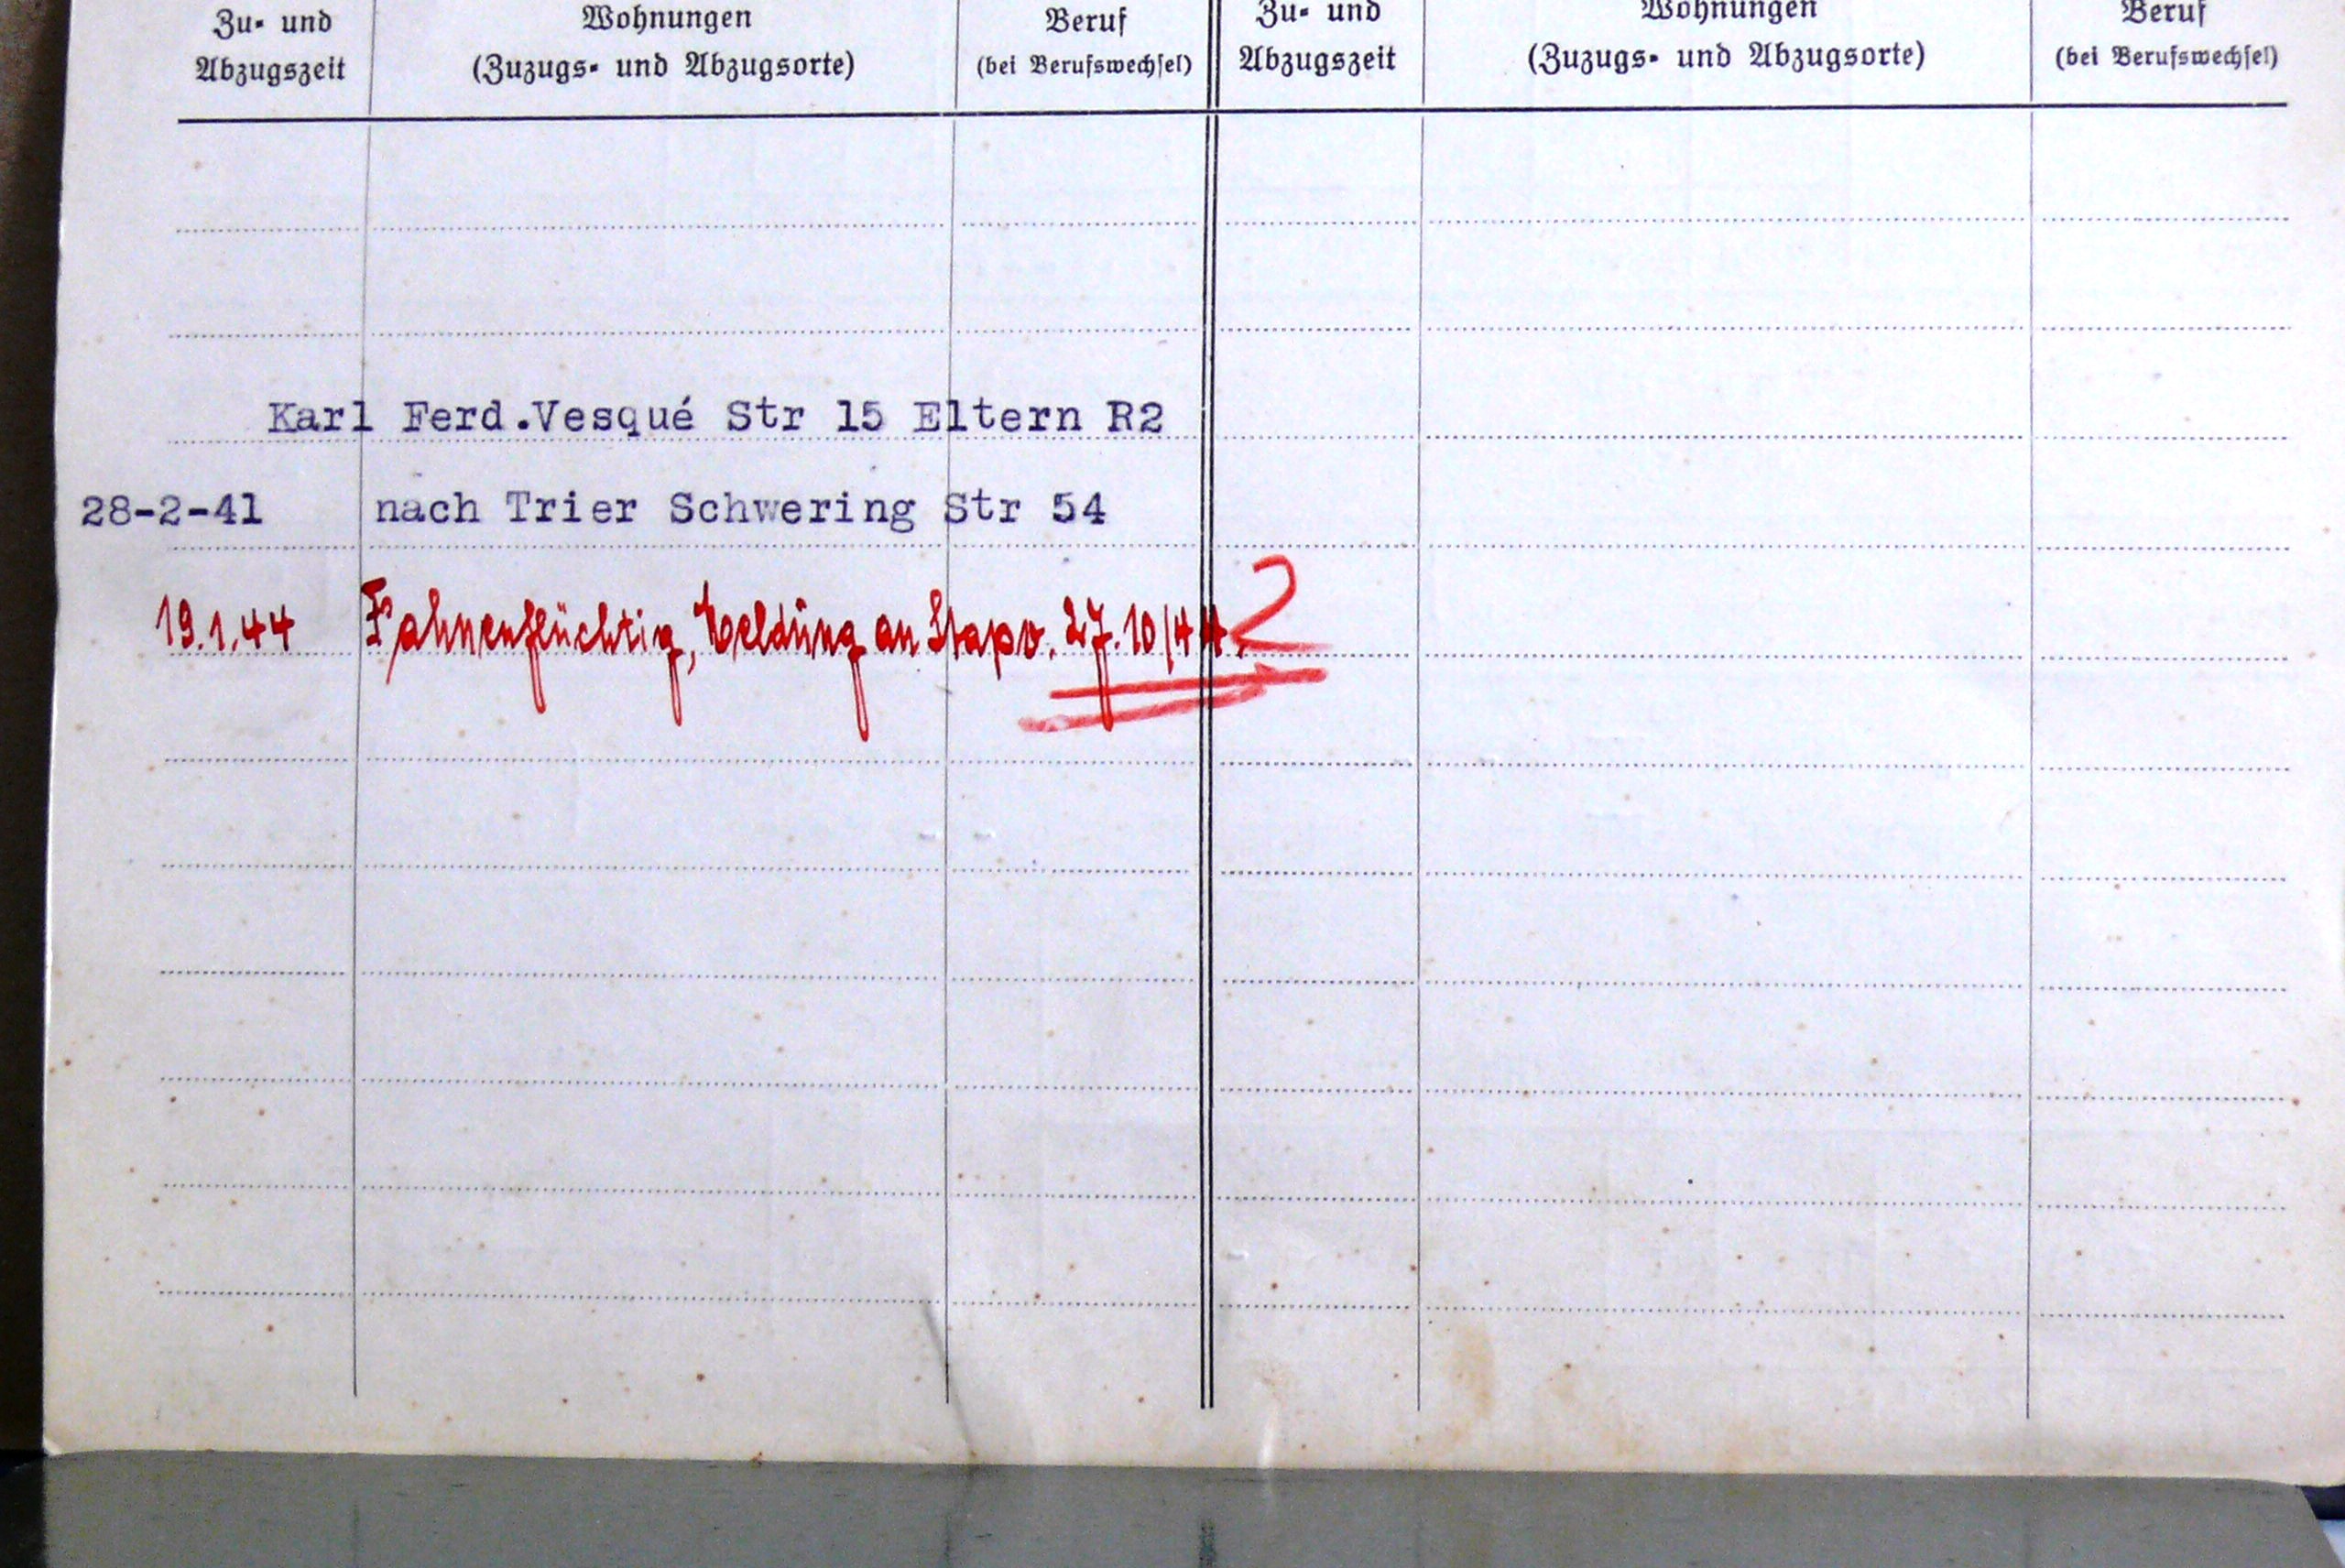 Zu- und Wohnungen Beruf Zu- und Wohnungen Beruf
Abzugszeit (Zuzugs- und Abzugsorte) (bei Berufswechsel) Abzugszeit (Zuzugs- und Abzugsorte) (bei Berufswechsel)
Karl Ferd.Vesqué Str 15 Eltern R2
28-2-41 nach Trier Schwering Str 54
19.1.44 Fahnenflüchtig, Meldung an Stapo. 27.10/44.